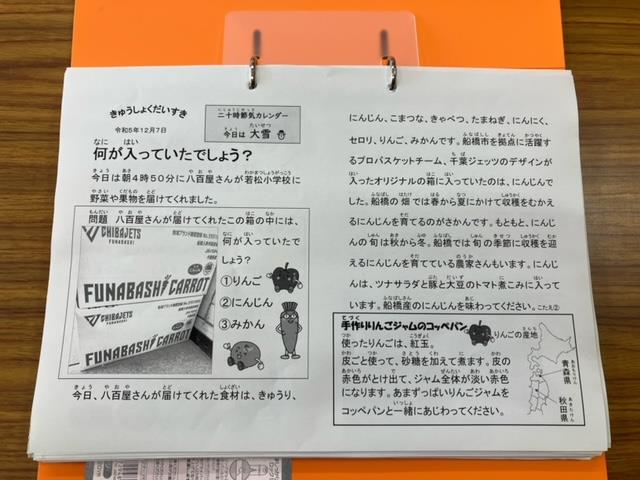 きゅうしょくだいすき
令和5年12月7日
二十時節気カレンダー
今日は 大雪
何が入っていたでしょう?
今日は朝4時50分に八百屋さんが若松小学校に
野菜や果物を届けてくれました。
問題 八百屋さんが届けてくれたこの箱の中には、
何が入っていたで
しょう?
①りんご
②にんじん
③みかん
CHIBAJETS
FUNABASHI
FUNABASHI CARROT
CHIBAJETS
FUNABASHI
FUNABASHI CARROT
今日、八百屋さんが届けてくれた食材は、きゅうり、
にんじん、こまつな、きゃべつ、たまねぎ、にんにく、
セロリ、りんご、みかんです。船橋市を拠点に活躍す
るプロバスケットチーム、千葉ジェッツのデザインが
入ったオリジナルの箱に入っていたのは、にんじんで
した。船橋の畑では春から夏にかけて収穫をむかえ
るにんじんを育てるのがさかんです。もともと、にんじ
んの旬は秋から冬。船橋では旬の季節に収穫を迎
えるにんじんを育てている農家さんもいます。にんじ
んは、ツナサラダと豚と大豆のトマト煮こみに入って
います。船橋産のにんじんを味わってください。こたえ②
手作りりんごジャムのコッペパン
りんごの産地
使ったりんごは、紅玉。
皮ごと使って、砂糖を加えて煮ます。皮の
赤色がとけ出て、ジャム全体が淡い赤色
になります。あまずっぱいりんごジャムを
コッペパンと一緒にあじわってください。
青森県
秋田県